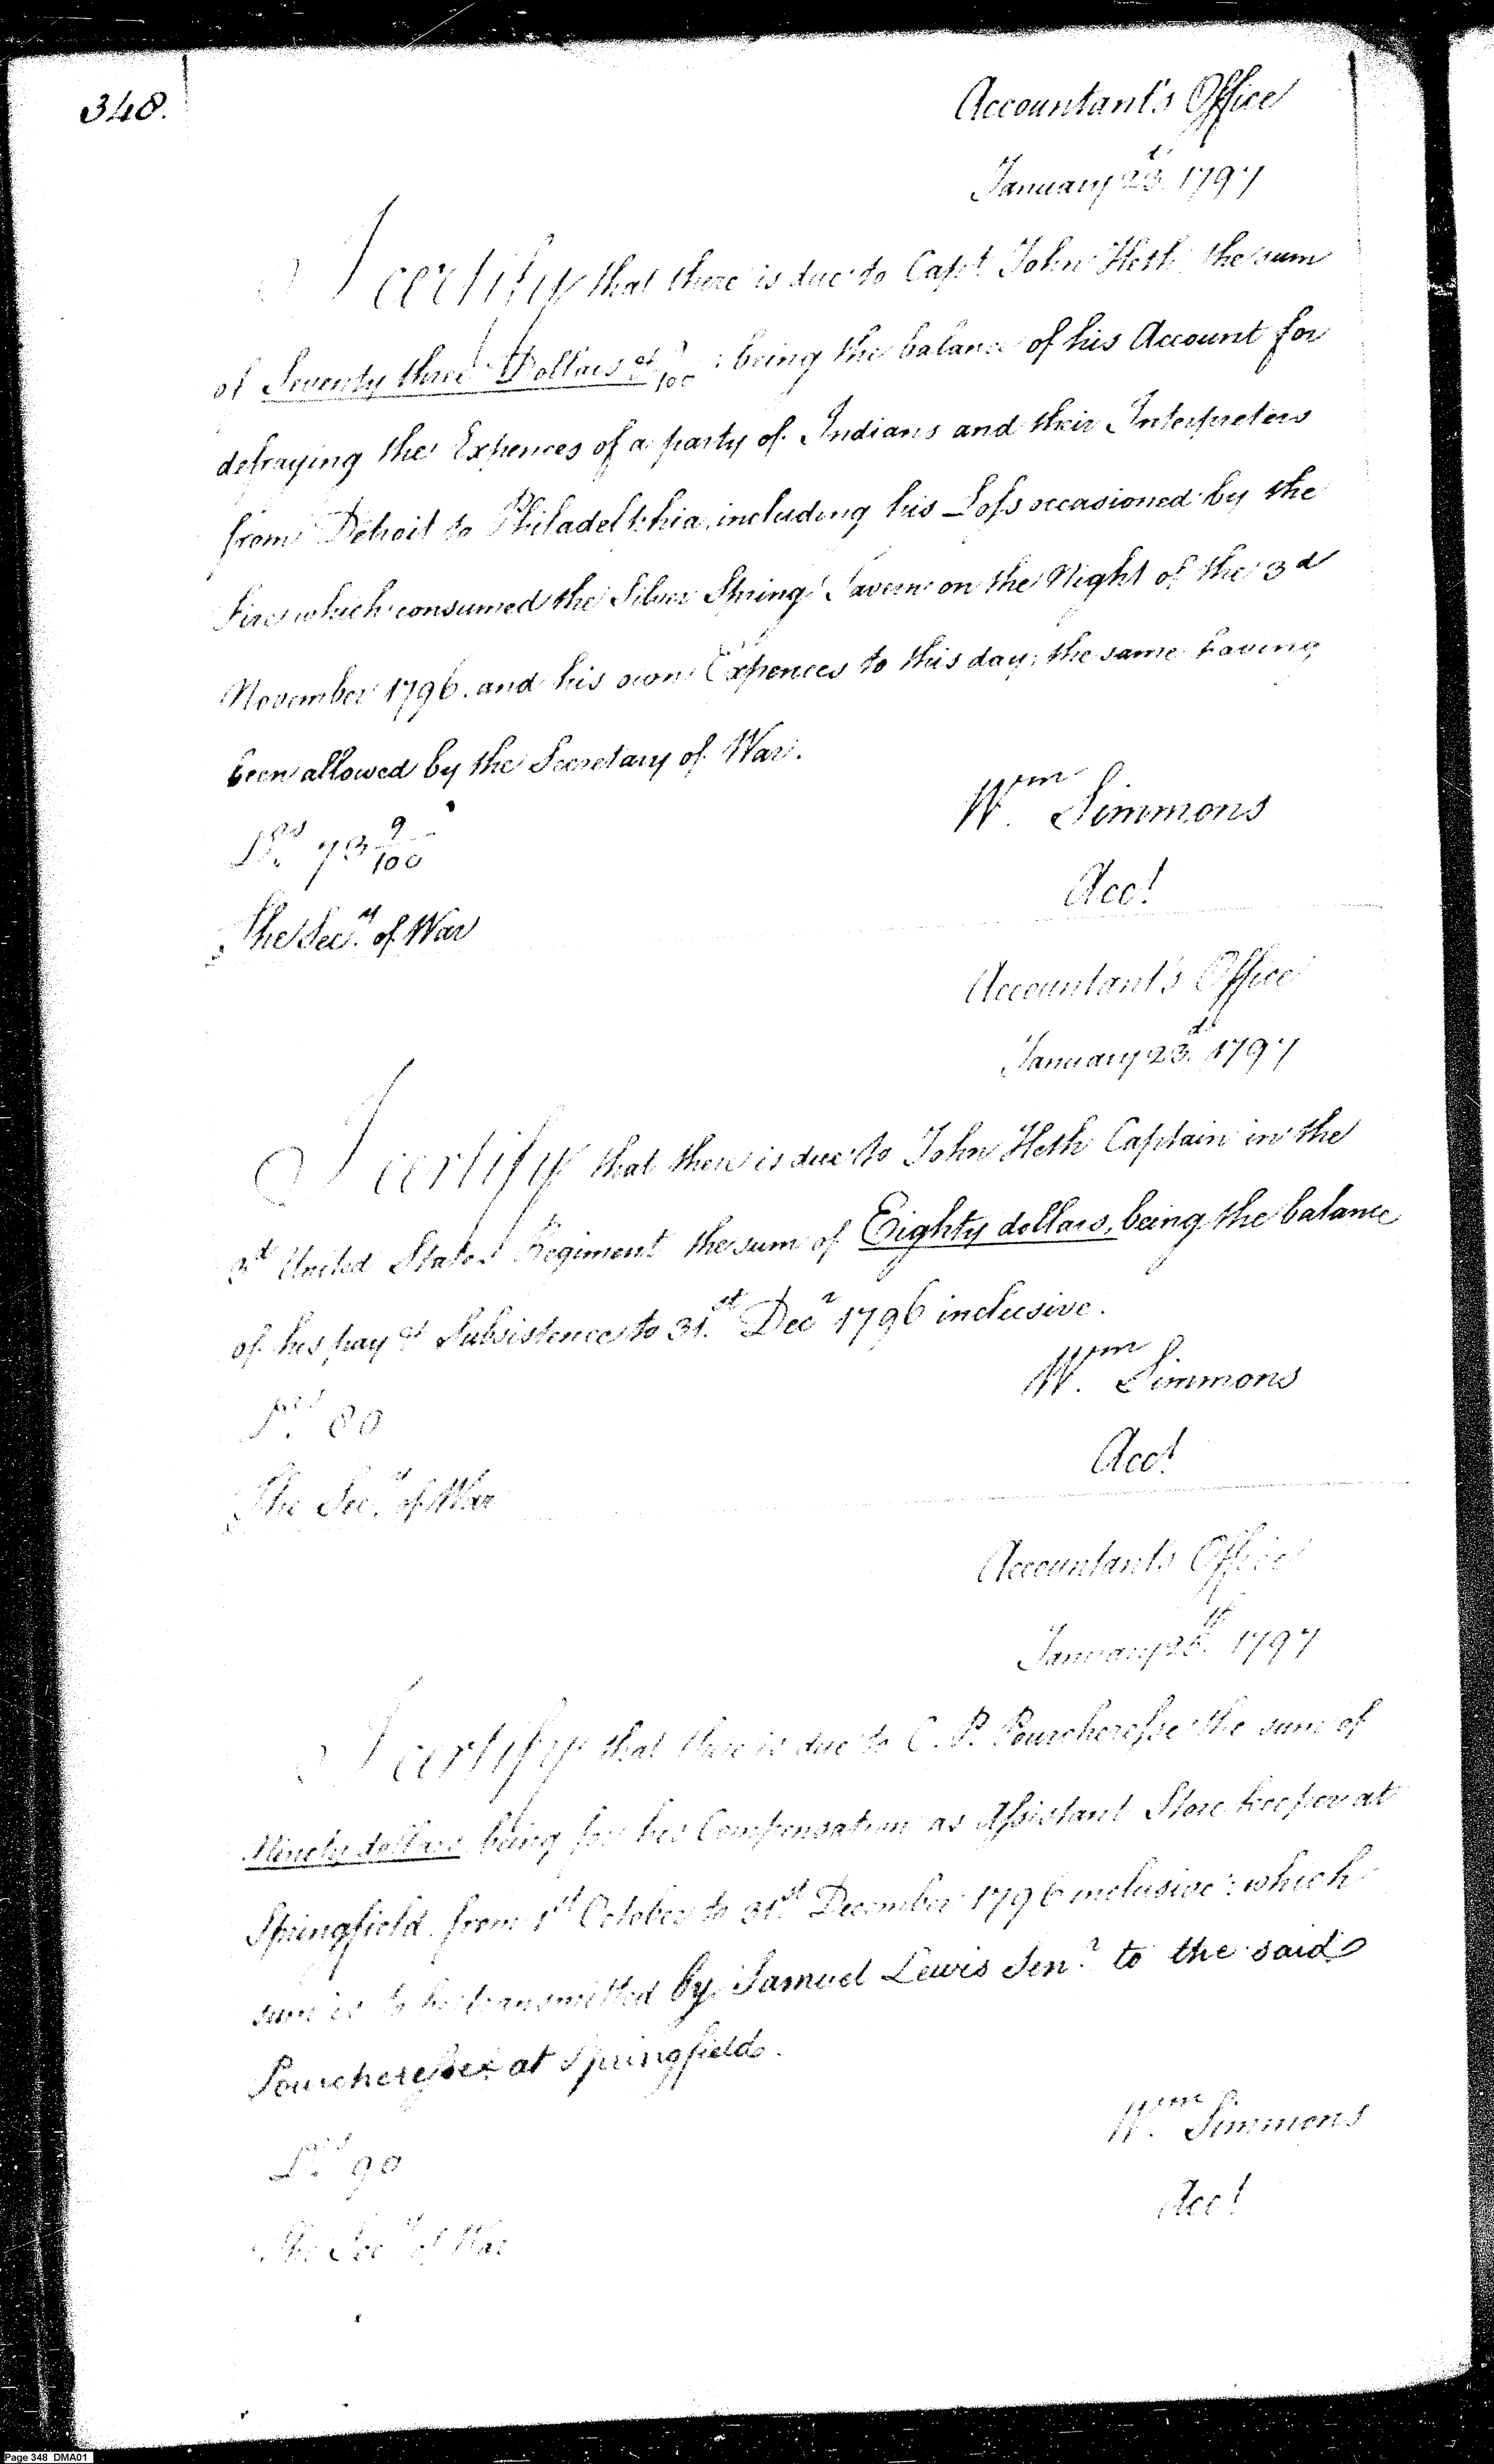 348.
Accountant's Office
January 23d. 1797
I certify that there is due to Capt. John Heth, the sum
of Seventy three Dollars & 9/100: being the balance of his Account for
defraying the Expences of a party of Indians and their Interpreters
from Detroit to Philadelphia, including his Loss occasioned by the
fire which consumed the Silver Spring Tavern on the Night of the 3d
November 1796. and his own Expences to this day; the same having
been allowed by the Secretary of War.
Drs. 73 9/100
Wm. Simmons
Acct.
The Secy. of War
Accountant's Office
January 23d. 1797
I certify that there is due to John Heth Captain in the
3d United States Regiment the sum of Eighty dollars, being the balance
of his pay & Subsistence to 31st. Decr 1796 inclusive.
Wm. Simmons
80
Acct.
The Secy. of War
Accountant's Office
January 25th. 1797
I certify that there is due to C. P. Pourcheresse the sum of
Ninety dollars being for his Compensation as Assistant Store keeper at
Springfield from 1st October to 31st. December 1796 inclusive: which
sum is to be transmitted by Samuel Lewis Senr. to the said
Pourcheresse at Springfield.
Wm. Simmons
Drs. 90
Acct.
The Secy. of War
Page 348 DMA01